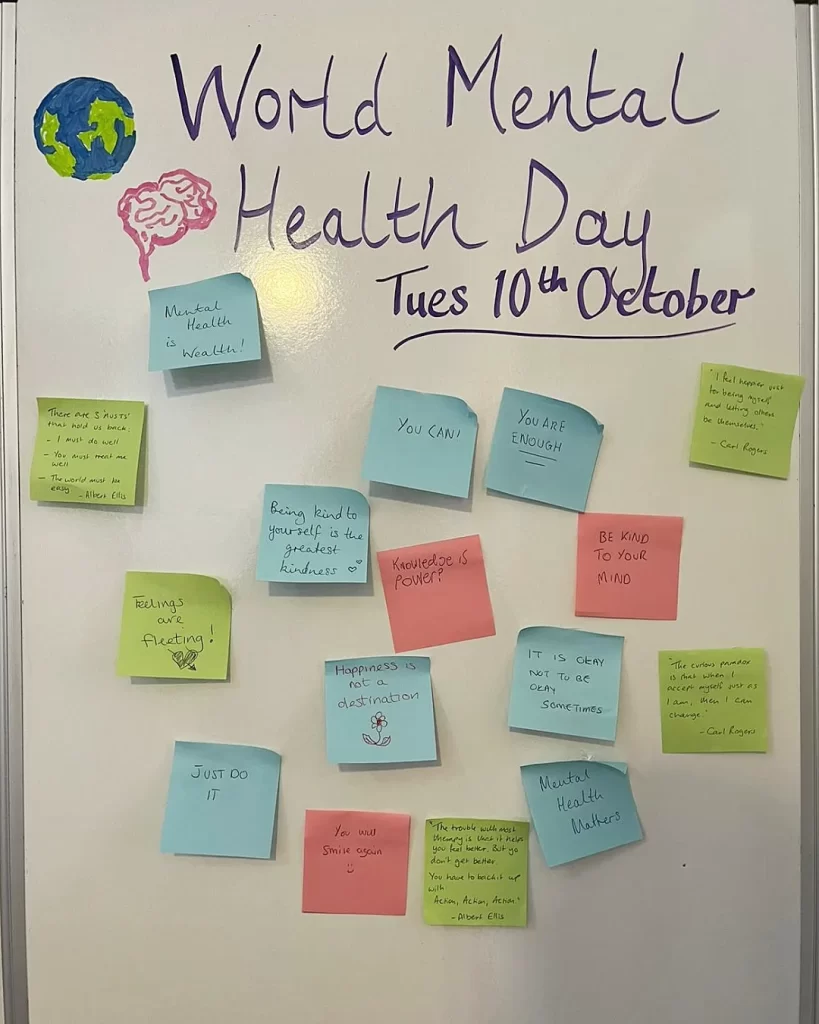 World Mental
Health Day
Tues 10th October
Mental
Health
is
Wealth!
There are 3 'MUSTS'
that hold us back:
- I must do well
- You must treat me
well
- The world must be
easy
- Albert Ellis
YOU CAN!
YOU ARE
ENOUGH
"I feel happier just
for being myself
and letting others
be themselves."
- Carl Rogers
Being kind to
yourself is the
greatest
kindness
Knowledge is
power?
BE KIND
TO YOUR
MIND
Feelings
are
fleeting!
Happiness is
not a
destination
IT IS OKAY
NOT TO BE
OKAY
SOMETIMES
"The curious paradox
is that when I
accept myself just as
I am, then I can
change."
- Carl Rogers
JUST DO
IT
You will
smile again
"The trouble with most
therapy is that it helps
you feel better. But
don't get better.
You have to back it up
with
Action, Action, Action."
- Albert Ellis
Mental
Health
Matters